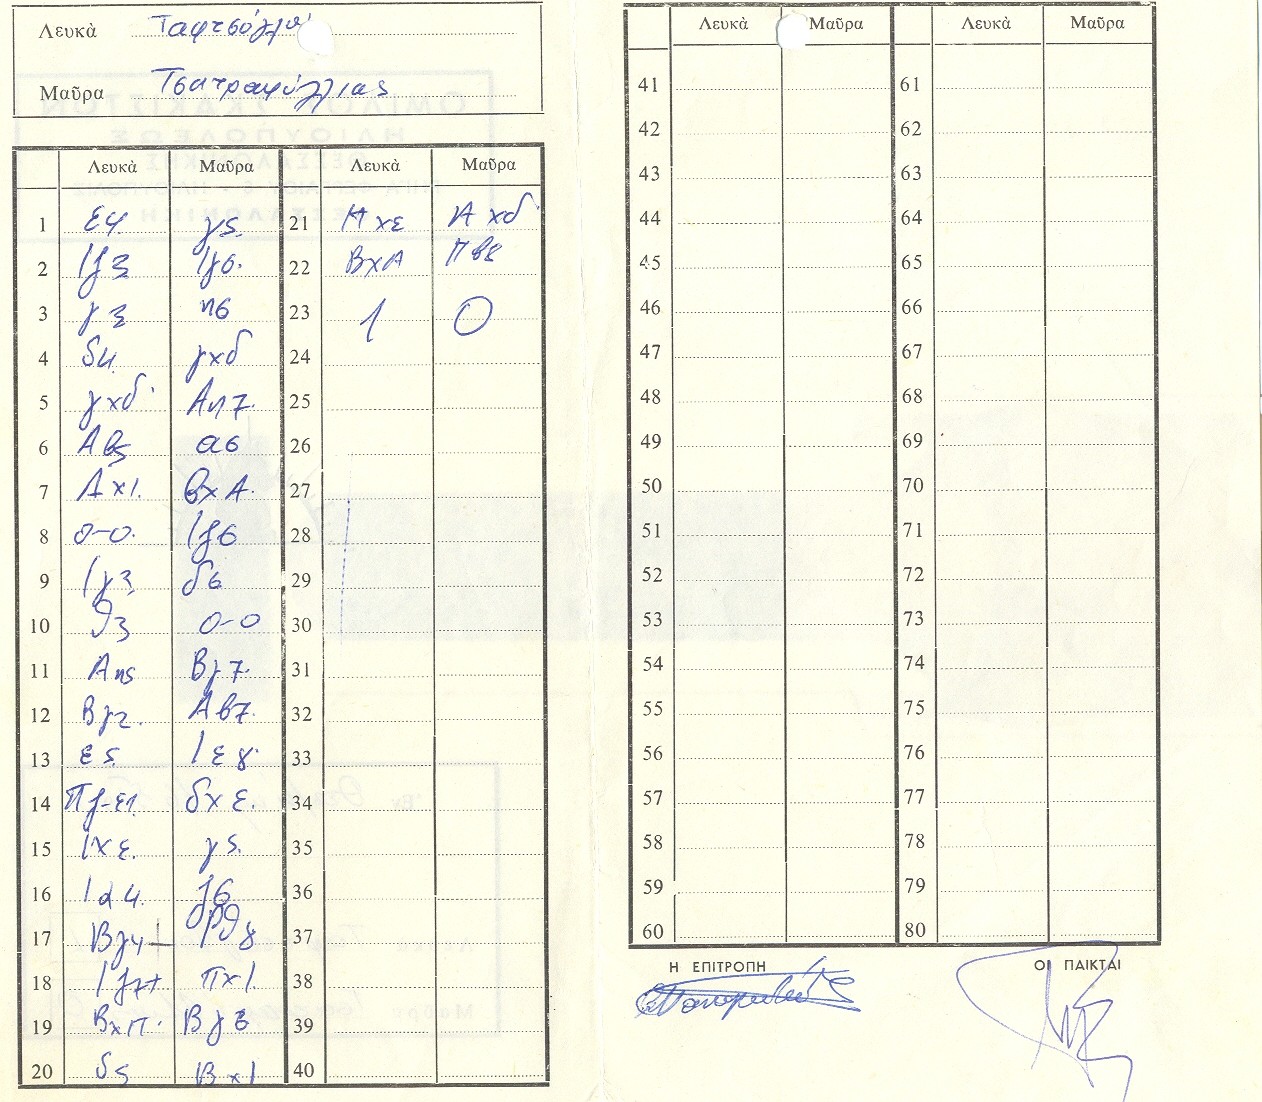 Λευκὰ Ταφτσόγλου
Μαῦρα
Λευκὰ Μαῦρα Λευκὰ Μαῦρα
1 ε4 γ5. 21 Π χ ε Α χδ
2 Ιζ3 Ιζ6. 22 ΒχΑ Πβ8
3 γ3 η6 23 1 0
4 δ4. γχδ 24
5 γχδ Αη7. 25
6 Αβ5 α6 26
7 Αχι. βχΑ. 27
8 ο-ο. Ιζ6 28
9 Ιγ3 δ6 29
10 θ3 ο-ο 30
11 Αη5 Βγ7. 31
12 Βγ2. Αβ7. 32
13 ε5. Ιε8. 33
14 Πζ-ε1. δχε. 34
15 Ιχε. γ5. 35
16 Ιδ4. ζ6 36
17 Βγ4+ Ρθ8 37
18 Ιζ7+ πχΙ. 38
19 ΒχΠ. Βγ8 39
20 δ5 ΒχΙ 40
Λευκὰ Μαῦρα Λευκὰ Μαῦρα
41 61
42 62
43 63
44 64
45 65
46 66
47 67
48 68
49 69
50 70
51 71
52 72
53 73
54 74
55 75
56 76
57 77
58 78
59 79
60 80
Η ΕΠΙΤΡΟΠΗ ΟΙ ΠΑΙΚΤΑΙ